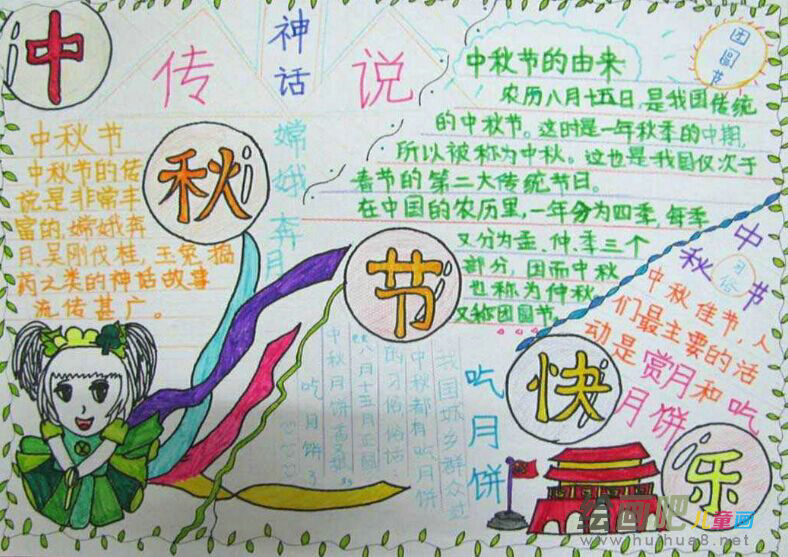 中
秋
节
快
乐
神话
传说
中秋节
中秋节的传
说是非常丰
富的,嫦娥奔
月,吴刚伐桂,玉兔捣
药之类的神话故事
流传甚广。
嫦娥奔月
中秋节的由来
农历八月十五日,是我国传统
的中秋节。这时是一年秋季的中期,
所以被称为中秋。这也是我国仅次于
春节的第二大传统节日。
在中国的农历里,一年分为四季,每季
又分为孟、仲、季三个
部分,因而中秋
也称为仲秋,
又称团圆节
团圆节
中秋节
习俗
中秋佳节,人
们最主要的活
动是赏月和吃
月饼
吃月饼
我国城乡群众过
中秋都有吃月饼
的习俗,俗话:
“八月十五月正圆
中秋月饼香又甜”
吃月饼
绘画吧 儿童画
www.huihua8.net